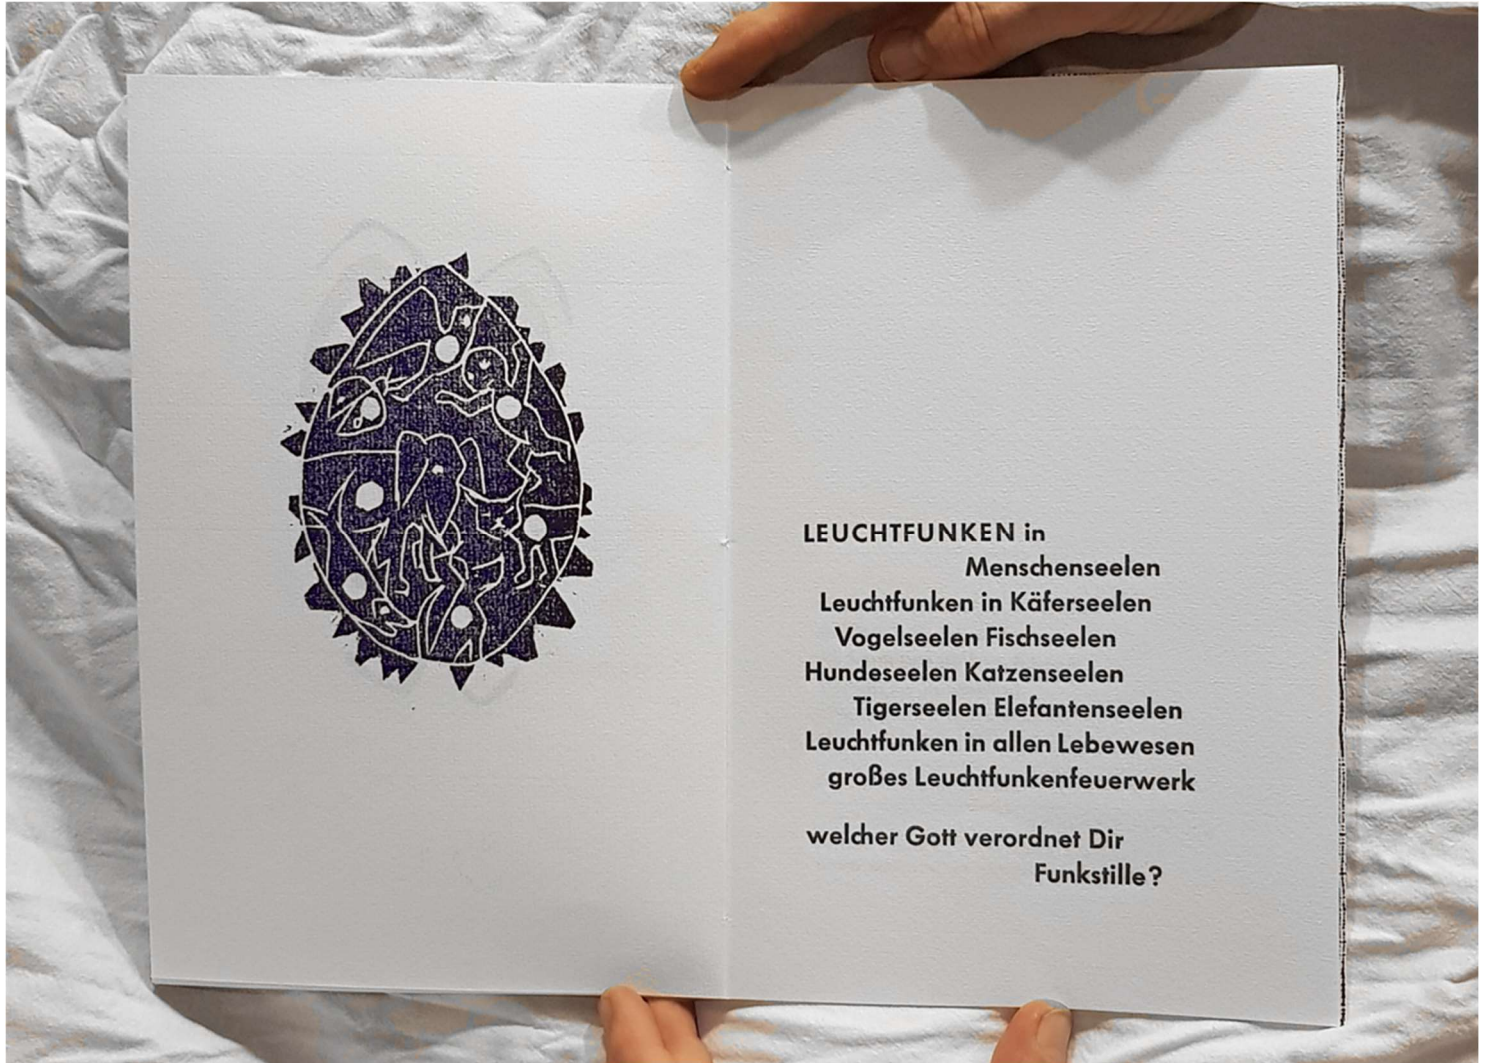 LEUCHTFUNKEN in
Menschenseelen
Leuchtfunken in Käferseelen
Vogelseelen Fischseelen
Hundeseelen Katzenseelen
Tigerseelen Elefantenseelen
Leuchtfunken in allen Lebewesen
großes Leuchtfunkenfeuerwerk
welcher Gott verordnet Dir
Funkstille?